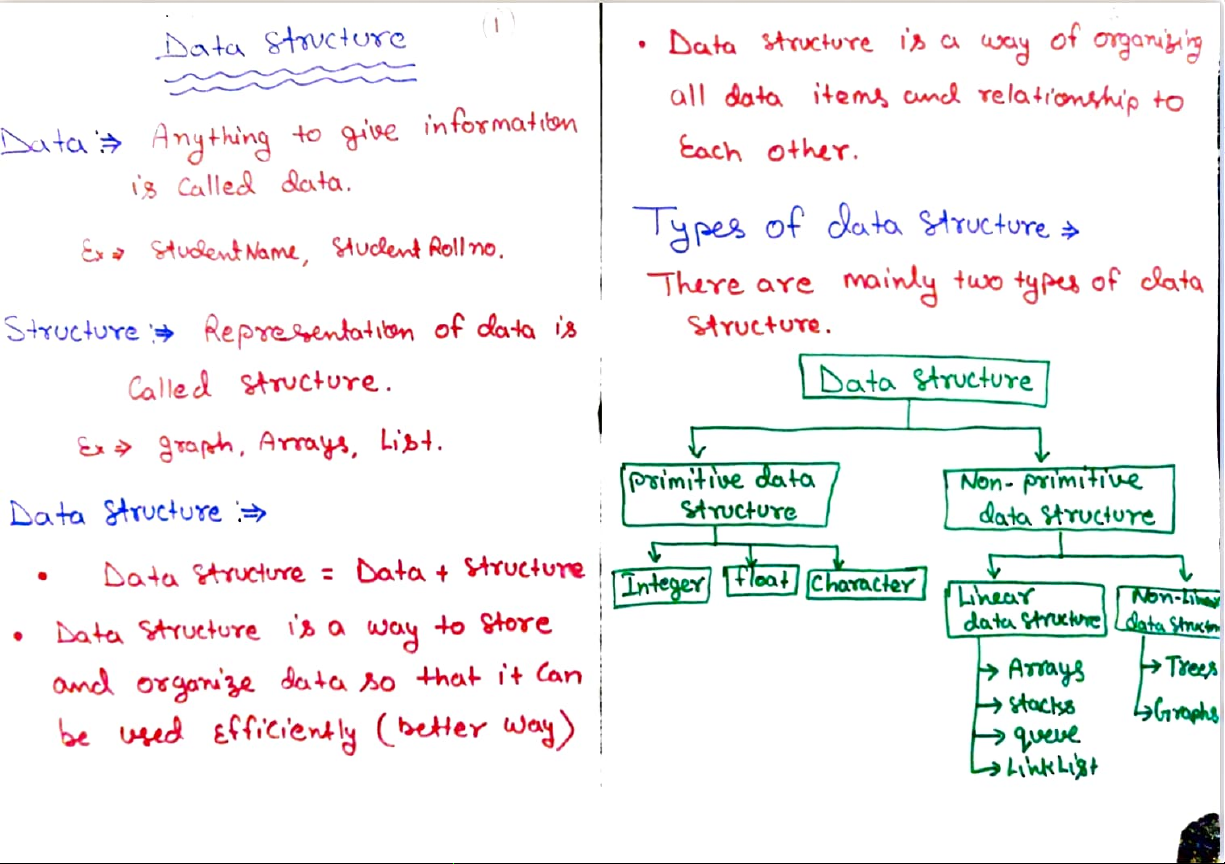 Data Structure
(1)
Data :⇒ Anything to give information
is Called data.
Ex ⇒ Student Name, Student Roll no.
Structure :⇒ Representation of data is
Called structure.
Ex ⇒ graph, Arrays, List.
Data Structure :⇒
• Data Structure = Data + Structure
• Data Structure is a way to Store
and organize data so that it Can
be used Efficiently (better way)
• Data structure is a way of organising
all data items and relationship to
Each other.
Types of data Structure ⇒
There are mainly two types of data
Structure.
Data Structure
primitive data
Structure
Non-primitive
data structure
Integer
float
Character
Linear
data Structure
Non-Linear
data Structu
→ Arrays
→ Stacks
→ queue
→ Link List
→ Trees
→ Graphs